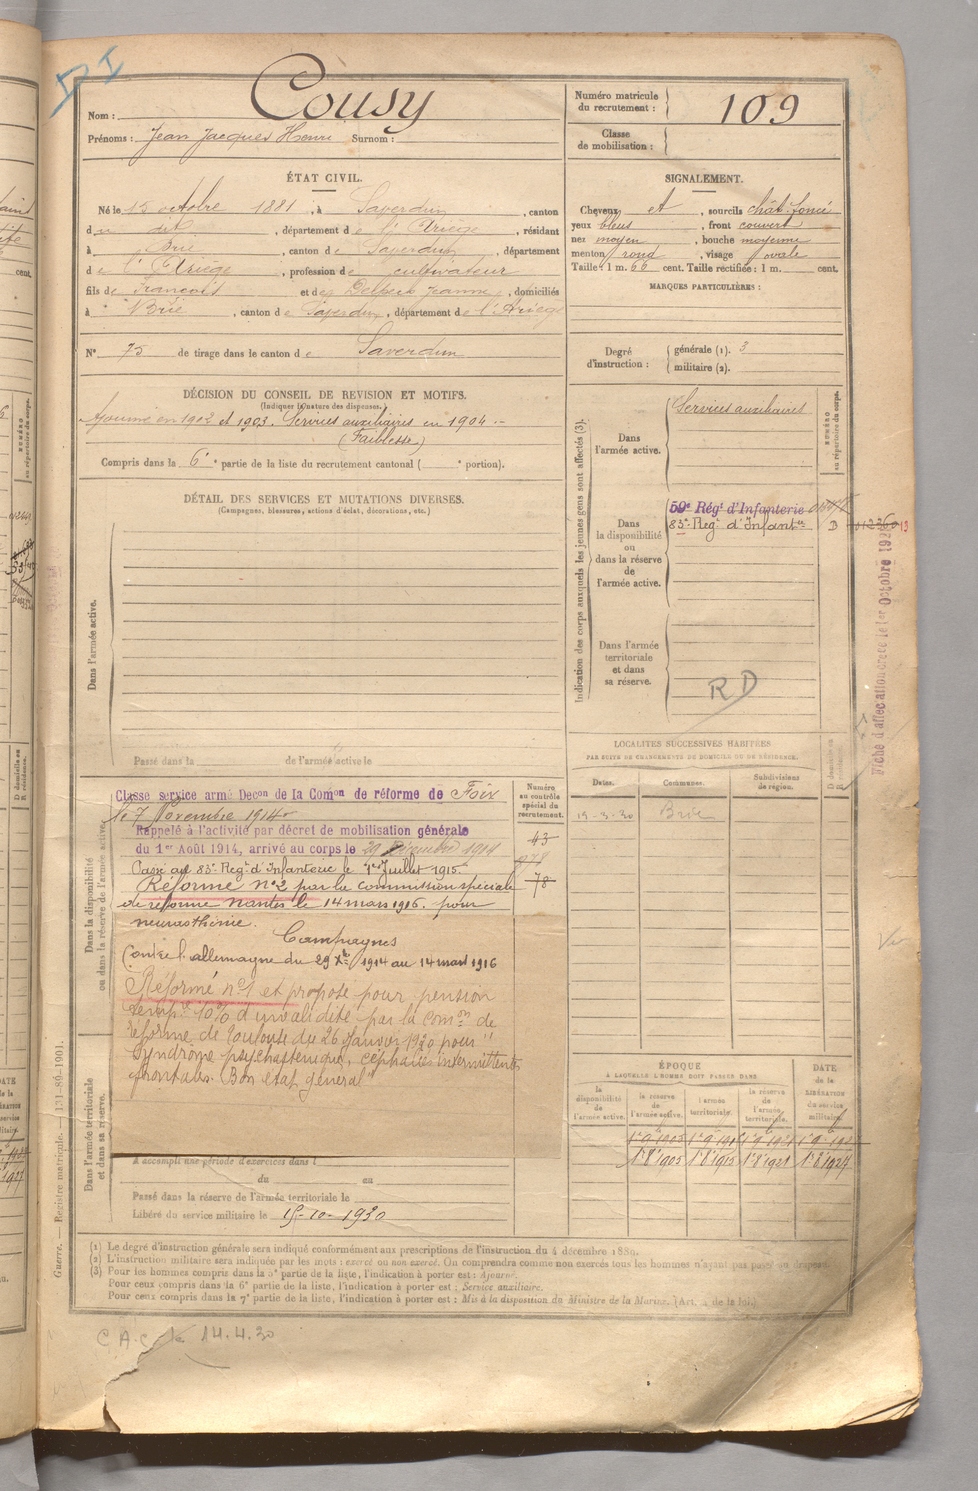 Nom : Cousy
Prénoms : Jean Jacques Henri Surnom :
Numéro matricule du recrutement : 109
Classe de mobilisation :
ÉTAT CIVIL.
Né le 15 octobre 1881, à Saverdun, canton
du dit, département de l'Ariège, résidant
à Brie, canton de Saverdun, département
de l'Ariège, profession de cultivateur
fils de François et de Delpech Jeanne, domiciliés
à Brie, canton de Saverdun, département de l'Ariège
N° 75 de tirage dans le canton de Saverdun
SIGNALEMENT.
Cheveux et, sourcils chât. foncé
yeux bleus, front couvert
nez moyen, bouche moyenne
menton rond, visage ovale
Taille : 1 m. 66 cent. Taille rectifiée : 1 m. cent.
MARQUES PARTICULIÈRES :
Degré d'instruction : générale (1). 3
militaire (2).
DÉCISION DU CONSEIL DE REVISION ET MOTIFS.
(Indiquer la nature des dispenses.)
Ajourné en 1902 et 1903. Services auxiliaires en 1904
(Faiblesse)
Compris dans la 6e partie de la liste du recrutement cantonal ( e portion).
DÉTAIL DES SERVICES ET MUTATIONS DIVERSES.
(Campagnes, blessures, actions d'éclat, décorations, etc.)
Dans l'armée active.
Passé dans la de l'armée active le
Indication des corps auxquels les jeunes gens sont affectés (3).
NUMÉRO au répertoire du corps.
Dans l'armée active.
Services auxiliaires
Dans la disponibilité ou dans la réserve de l'armée active.
59e Régt d'Infanterie
83e Régt d'Infantie
Dans l'armée territoriale et dans sa réserve.
R D
Fiche d'affectation créée le 1er Octobre 192
Dans la disponibilité ou dans la réserve de l'armée active.
Classé service armé Décon de la Comon de réforme de Foix
le 7 Novembre 1914
Rappelé à l'activité par décret de mobilisation générale
du 1er Août 1914, arrivé au corps le 29 Décembre 1914
Passé au 83e Régt d'Infanterie le 1er Juillet 1915.
Réformé n°2 par la commission spéciale
de réforme Nantes le 14 mars 1916. pour
neurasthénie.
Campagnes
Contre l'allemagne du 29 Xbre 1914 au 14 mars 1916
Réformé n°1 et proposé pour pension
temp. 10% d'invalidité par la Comon de
réforme de Toulouse du 26 Janvier 1920 pour "
Syndrome psychasténique, céphalées intermittentes
frontales. Bon état général"
Numéro au contrôle spécial du recrutement.
43
78
Dans l'armée territoriale et dans sa réserve.
A accompli une période d'exercices dans l
du au
Passé dans la réserve de l'armée territoriale le
Libéré du service militaire le 15-10-1930
LOCALITÉS SUCCESSIVES HABITÉES
PAR SUITE DE CHANGEMENTS DE DOMICILE OU DE RÉSIDENCE.
Dates. Communes. Subdivisions de région. D domicile ou R résidence.
19-3-30 Brie
ÉPOQUE
À LAQUELLE L'HOMME DOIT PASSER DANS
la disponibilité de l'armée active. la réserve de l'armée active. l'armée territoriale. la réserve de l'armée territoriale.
DATE de la LIBÉRATION du service militaire.
1er 8bre 1905 1er 8bre 1915 1er 8bre 1921 1er 8bre 1927
(1) Le degré d'instruction générale sera indiqué conformément aux prescriptions de l'instruction du 4 décembre 1889.
(2) L'instruction militaire sera indiquée par les mots : exercé ou non exercé. On comprendra comme non exercés tous les hommes n'ayant pas passé au drapeau.
(3) Pour les hommes compris dans la 5e partie de la liste, l'indication à porter est : Ajourné.
Pour ceux compris dans la 6e partie de la liste, l'indication à porter est : Service auxiliaire.
Pour ceux compris dans la 7e partie de la liste, l'indication à porter est : Mis à la disposition du Ministre de la Marine. (Art. 4 de la loi.)
Guerre. — Registre matricule. — 131-89-1901.
C.A.C. le 14.4.30